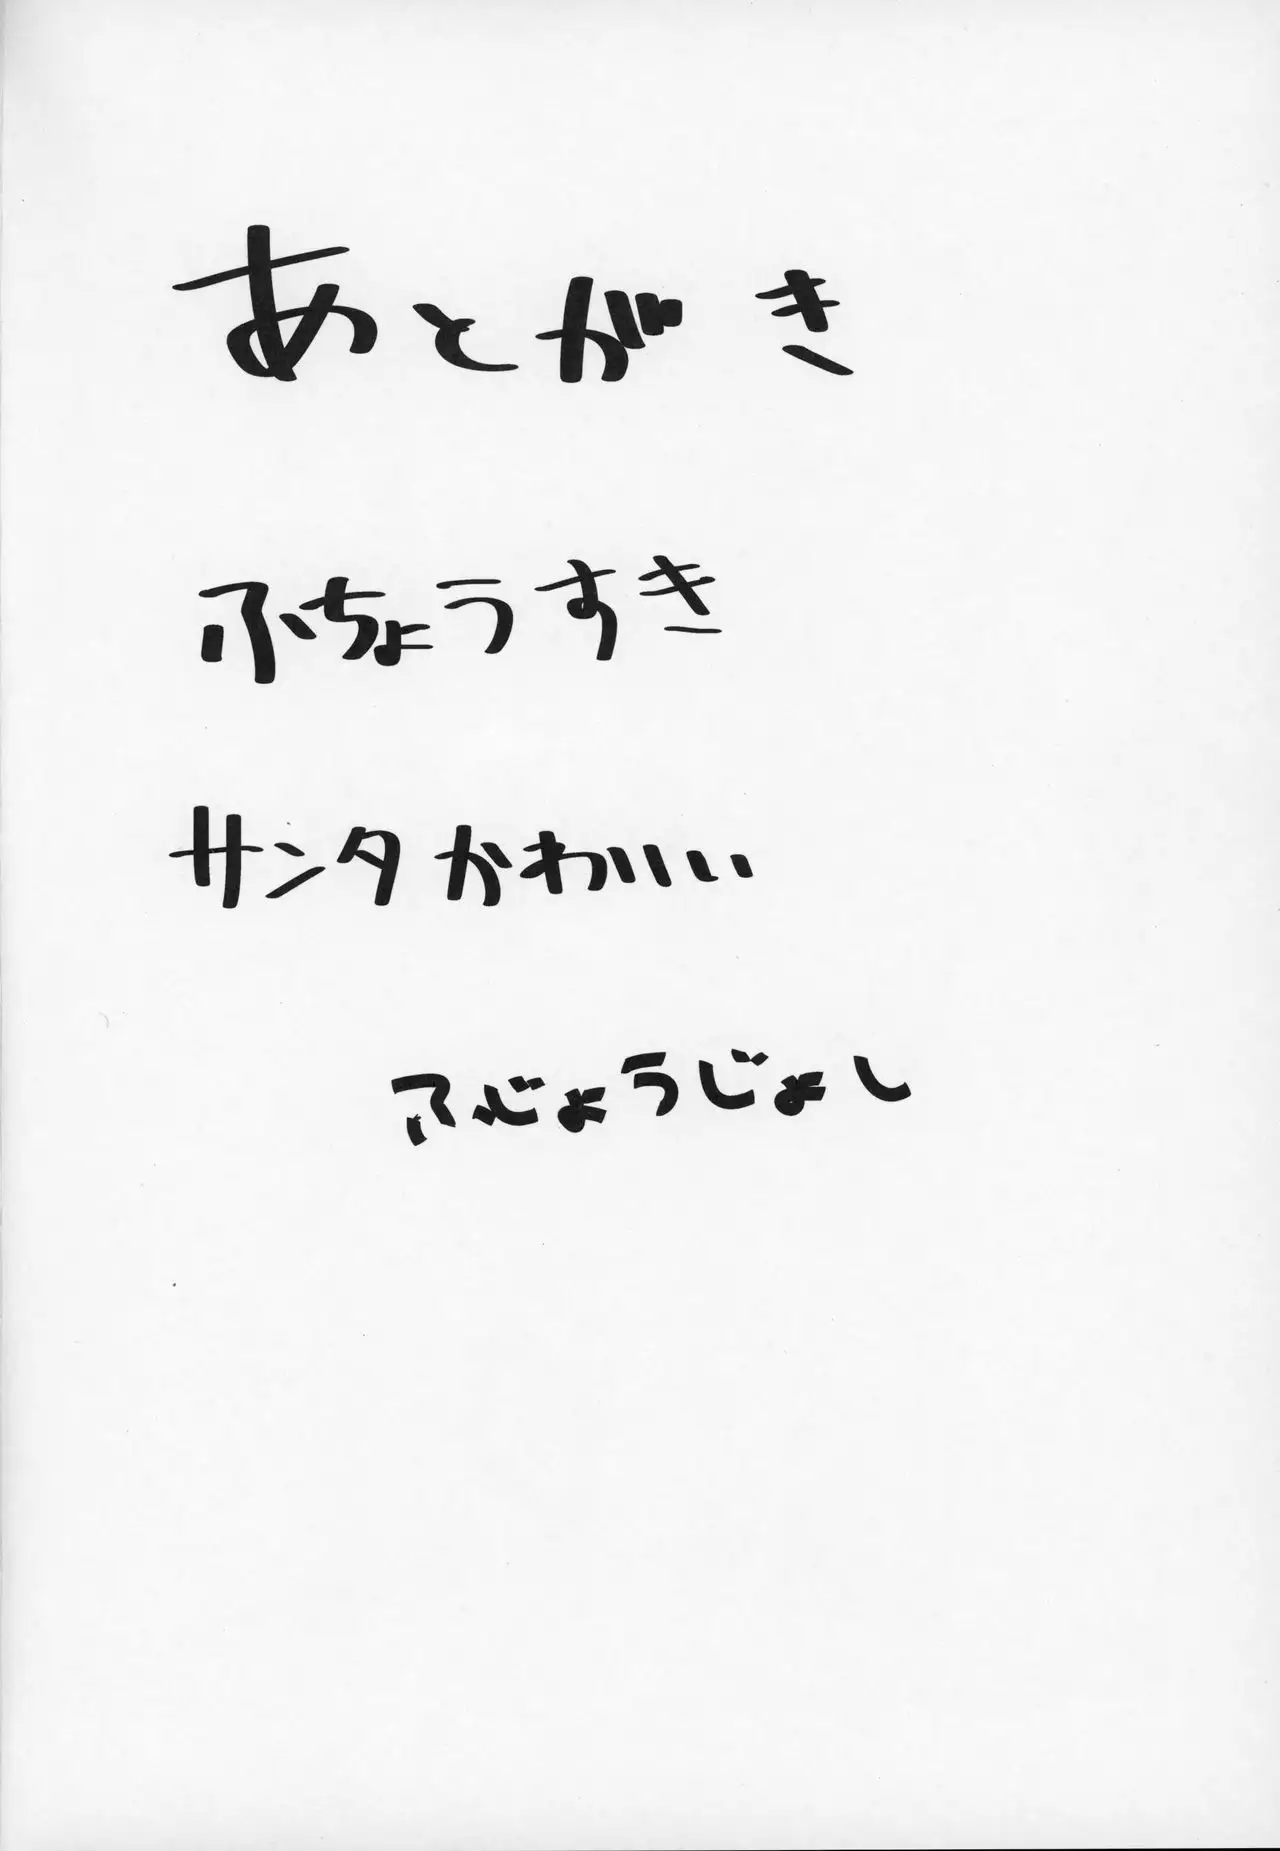 あとがき
ふちょうすき
サンタかわいい
ふじょうじょし